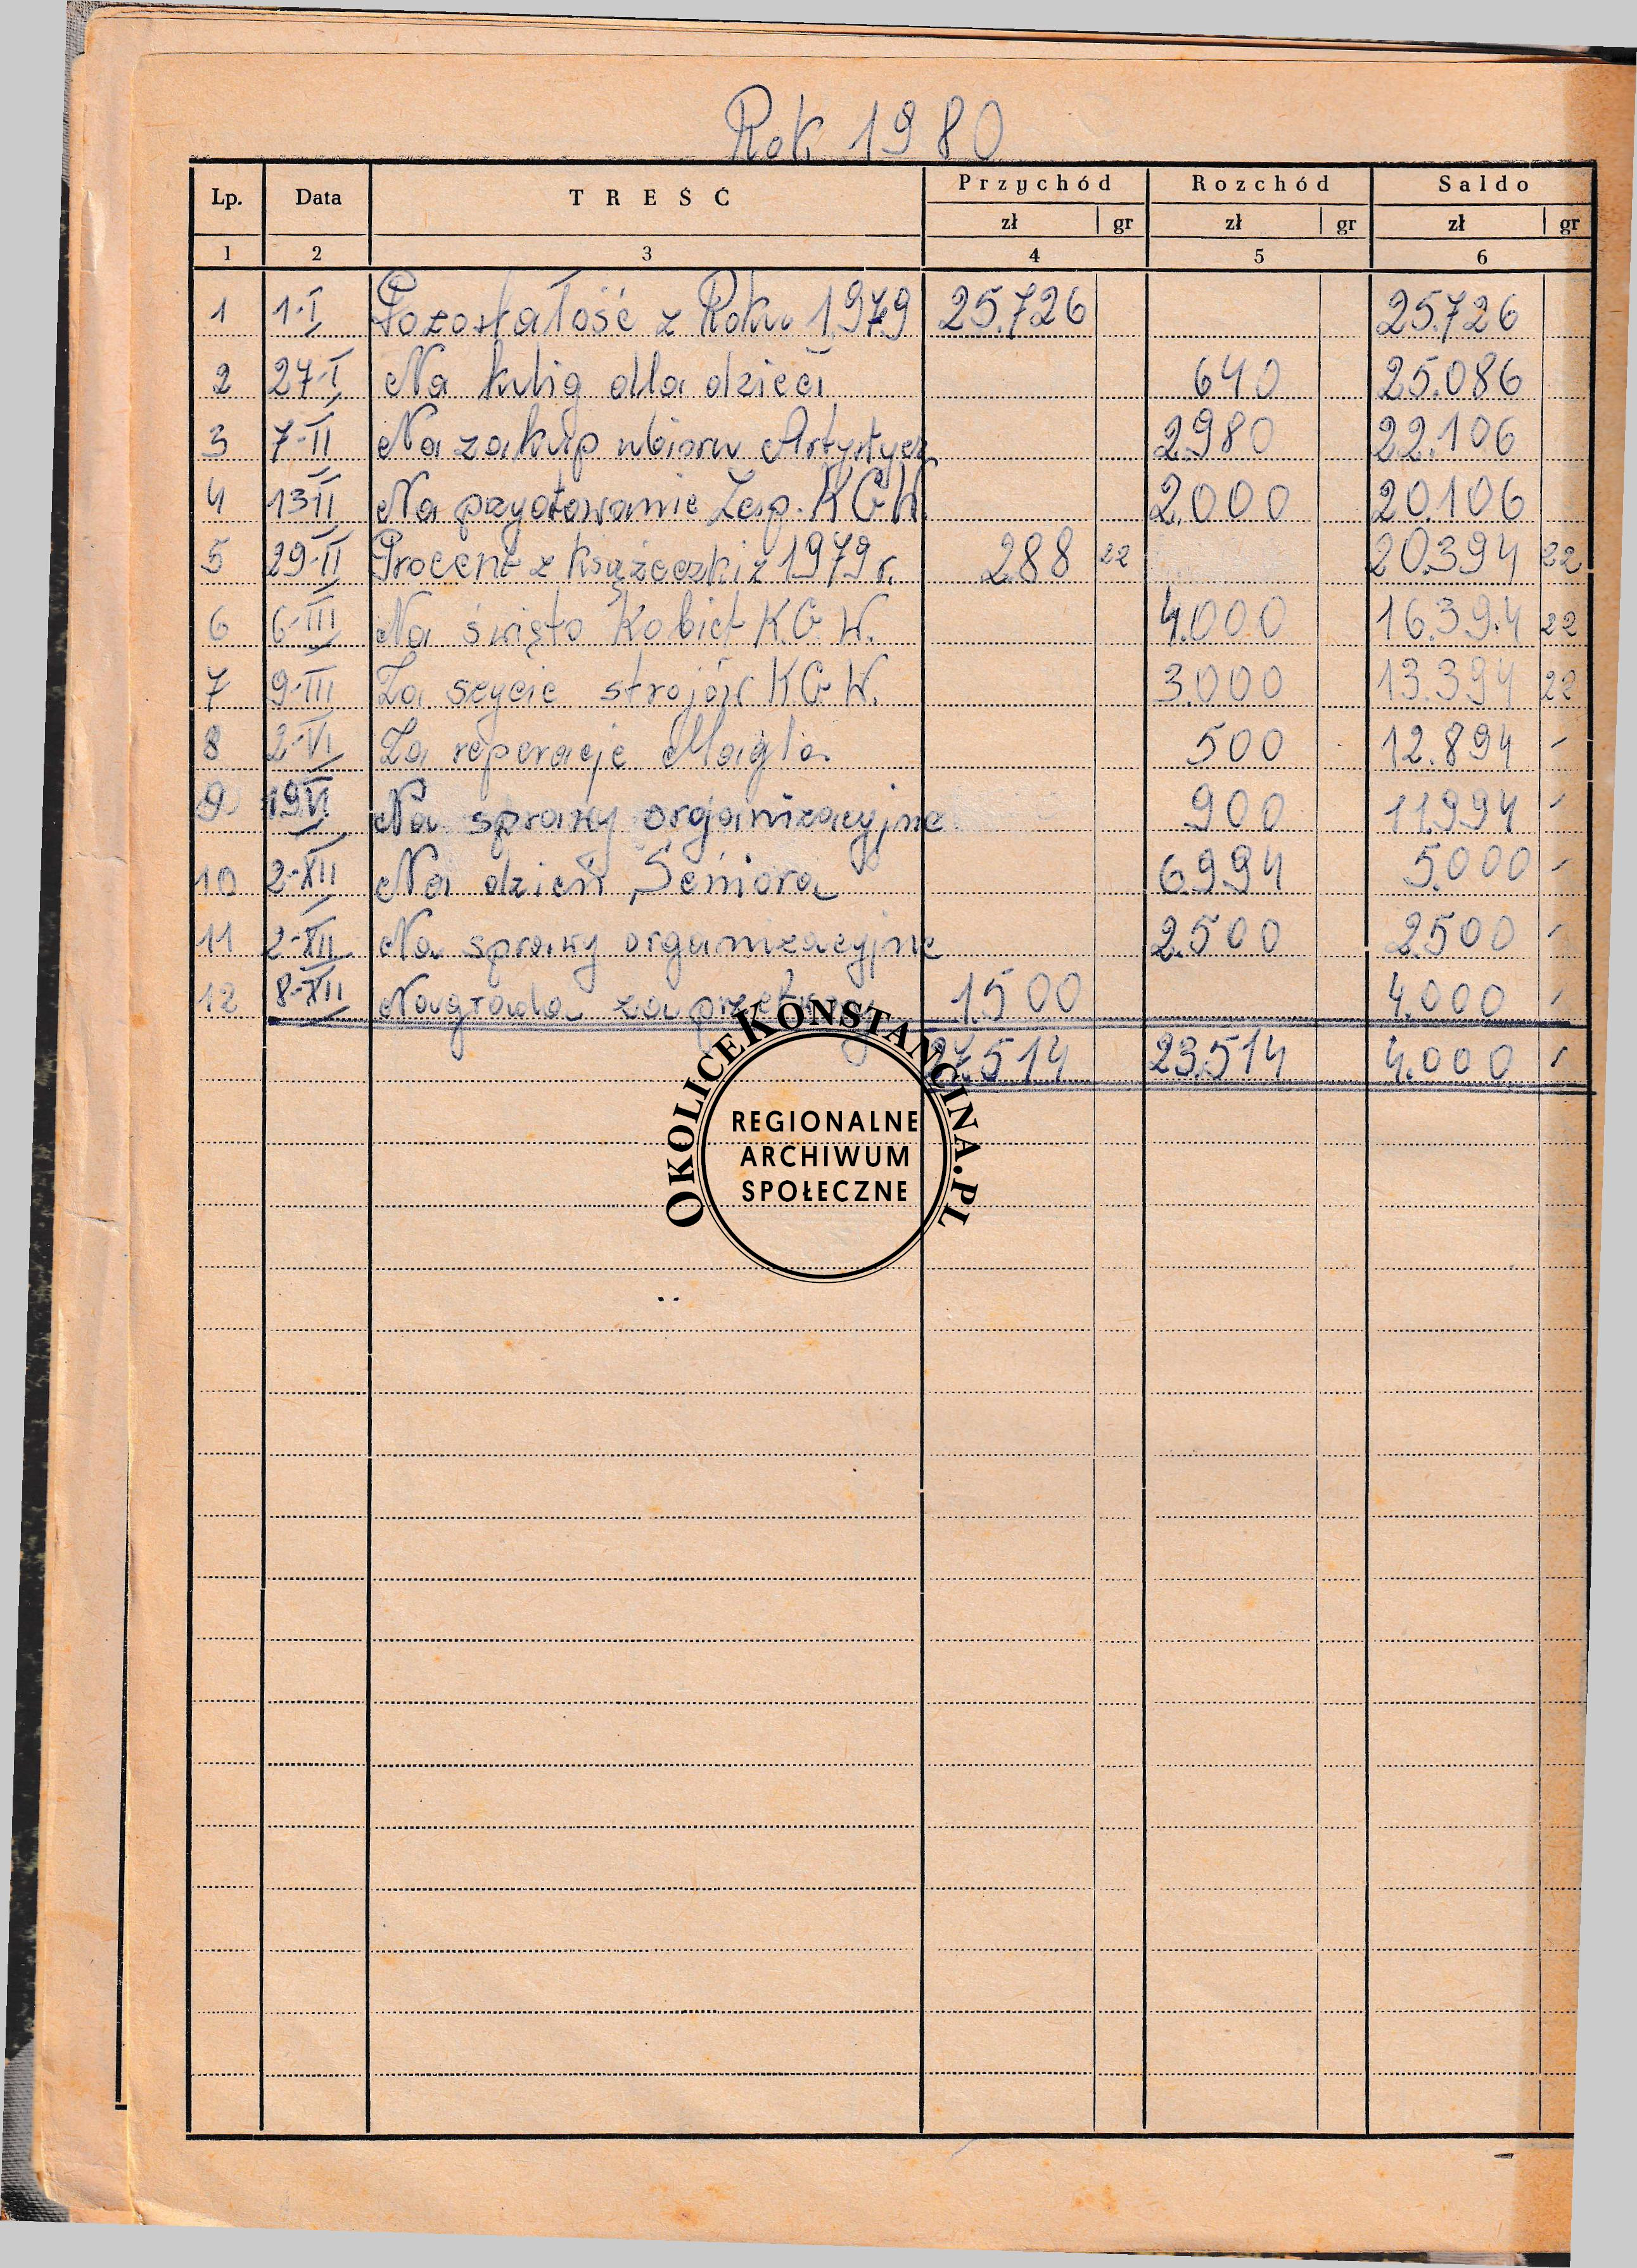 Rok 1980
Lp. Data TREŚĆ Przychód Rozchód Saldo
zł gr zł gr zł gr
1 2 3 4 5 6
1 1-I Pozostałość z Roku 1979 25.726 25.726
2 27-I Na kulig dla dzieci 640 25.086
3 7-II Na zakup ubioru Artystycz 2980 22.106
4 13-II Na przyotowanie Zesp. KGW. 2.000 20.106
5 29-II Procent z książeczki z 1979 r. 288 22 20.394 22
6 6-III Na święto Kobiet K.G.W. 4.000 16.394 22
7 9-III Za szycie strojów KGW. 3.000 13.394 22
8 2-VI Za reperacje Magla 500 12.894 -
9 19VI Na sprawy organizacyjne 900 11.994 -
10 2-XII Na dzień Seniora 6.994 5.000 -
11 2-XII Na sprawy organizacyjne 2.500 2500 -
12 8-XII Nagroda za 1.500 4.000 -
27.514 23.514 4.000 -
OKOLICEKONSTANCINA.PL
REGIONALNE
ARCHIWUM
SPOŁECZNE